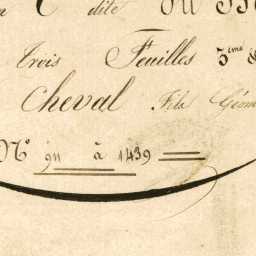 dite
trois Feuilles 3ème &
Cheval Fils Géom
N° 911 à 1439